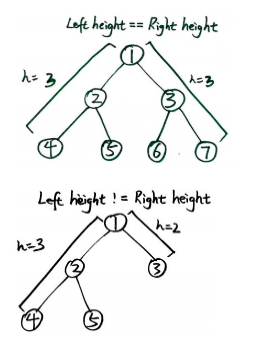 Left height == Right height
1
h= 3
h=3
2
3
4
5
6
7
Left height != Right height
1
h=2
h=3
2
3
4
5